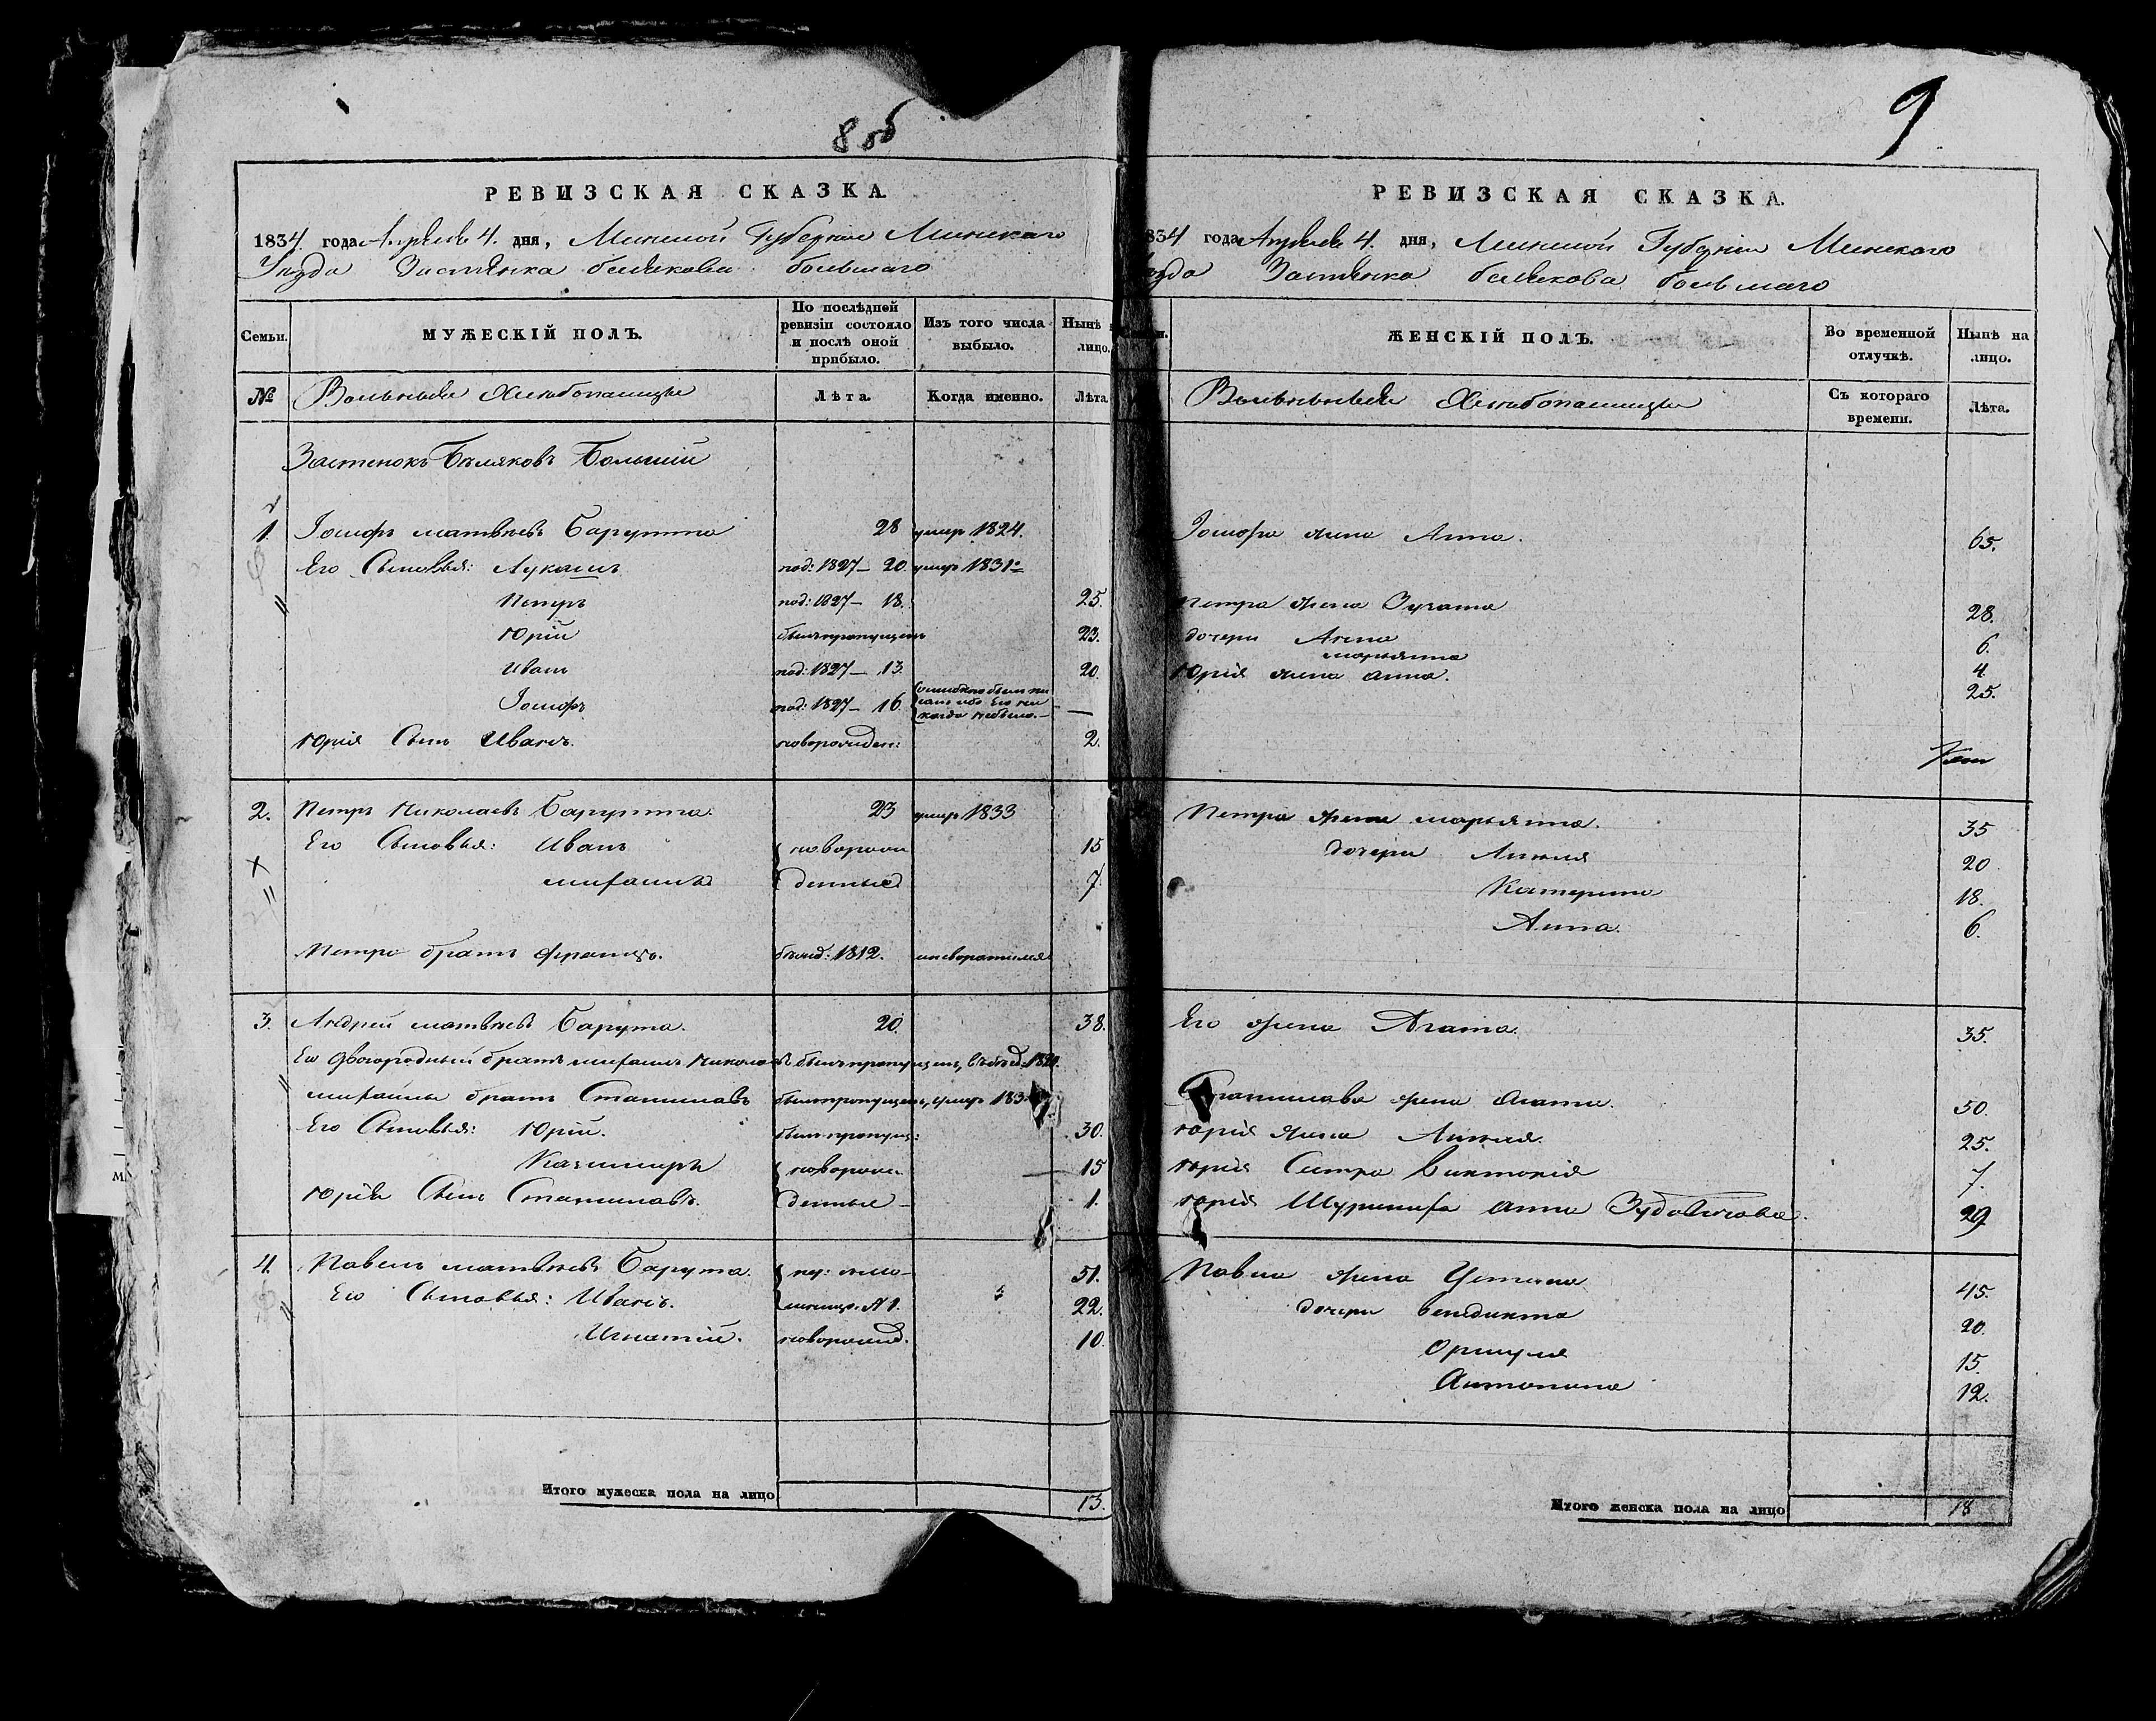 8 об
РЕВИЗСКАЯ СКАЗКА.
1834 года Апреля 4. дня, Минской Губернии Минскаго
Уезда Застѣнка белякова большаго
Семьи.
МУЖЕСКІЙ ПОЛЪ.
По послѣдней ревизіи состояло и послѣ оной прибыло.
Изъ того числа выбыло.
Нынѣ
лицо.
№
Вольные Хлѣбопашцы
Лѣта.
Когда именно.
Лѣта
Застенокъ Бѣляковъ Большій
1. Іосифъ матвѣевъ Барутта 28 умер 1824.
Его Сыновья: Лукашъ под: 1827 — 20. умер 1831
Петръ под: 1827 — 18. 25.
Юрій былъ пропущенъ 23.
Иванъ под: 1827 — 13. 20.
Іосифъ под: 1827 — 16. —
Юрія Сынъ Иванъ. новорожден: 2.
2. Петръ Николаевъ Барутта. 23 умер 1833
Его Сыновья: Иванъ новорож 15
михаилъ денные 7.
Петра братъ францъ. 1812.
3. Андрей матвѣевъ Барута. 20. 38.
Его двоюродный братъ михаилъ Николаевъ былъ пропущенъ,
михаила братъ Станиславъ былъ пропущенъ, умер 183
Его Сыновья: Юрій. былъ пропущ: 30.
Казимиръ новорож 15
Юрія Сынъ Станиславъ. денные — 1.
4. Павелъ матвѣевъ Барута. 51.
Его Сыновья: Иванъ. №1. 22.
Игнатій. новорожд. 10.
Итого мужеска пола на лицо 13.
9
РЕВИЗСКАЯ СКАЗКА.
834 года Апреля 4. дня, Минской Губерніи Минскаго
езда Застѣнка белякова большаго
ЖЕНСКІЙ ПОЛЪ.
Во временной отлучкѣ.
Нынѣ на лицо.
Вольные Хлѣбопашцы
Съ котораго времени.
Лѣта.
Іосифа жена Анна. 65.
Петра жена 28.
дочери Анна 6.
марьянна 4
Юрія жена анна. 25.
Петра жена марьянна. 35
дочери Анеля 20
Катерина 18.
Анна. 6.
Его жена Агата. 35.
Станислава жена Агата. 50.
Юрія жена Анеля. 25.
Юрія Сестра Викторія 7.
Юрія анна 29
Павла жена 45.
дочери бенедикта 20.
Оршуля 15
Антонина 12.
Итого женска пола на лицо 18